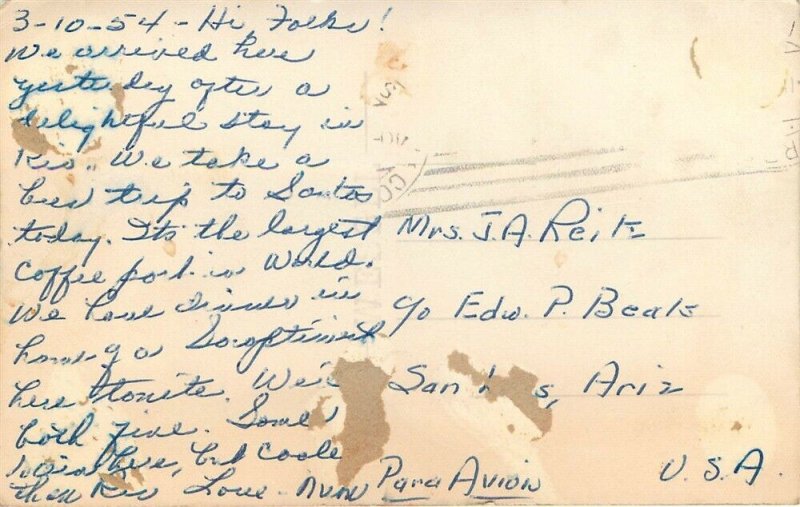 3-10-54 - Hi Folks!
We arrived here
yesterday after a
delightful stay in
Rio. We take a
bus trip to Santos
today. Its the largest
coffee port in World.
We have dinner in
home of a Soroptimist
here tonite. We're
both fine. Some
here, but cooler
then Rio Love -
Mrs. J. A. Reitz
c/o Edw. P. Beals
San s, Ariz
Para Avion
U.S.A.